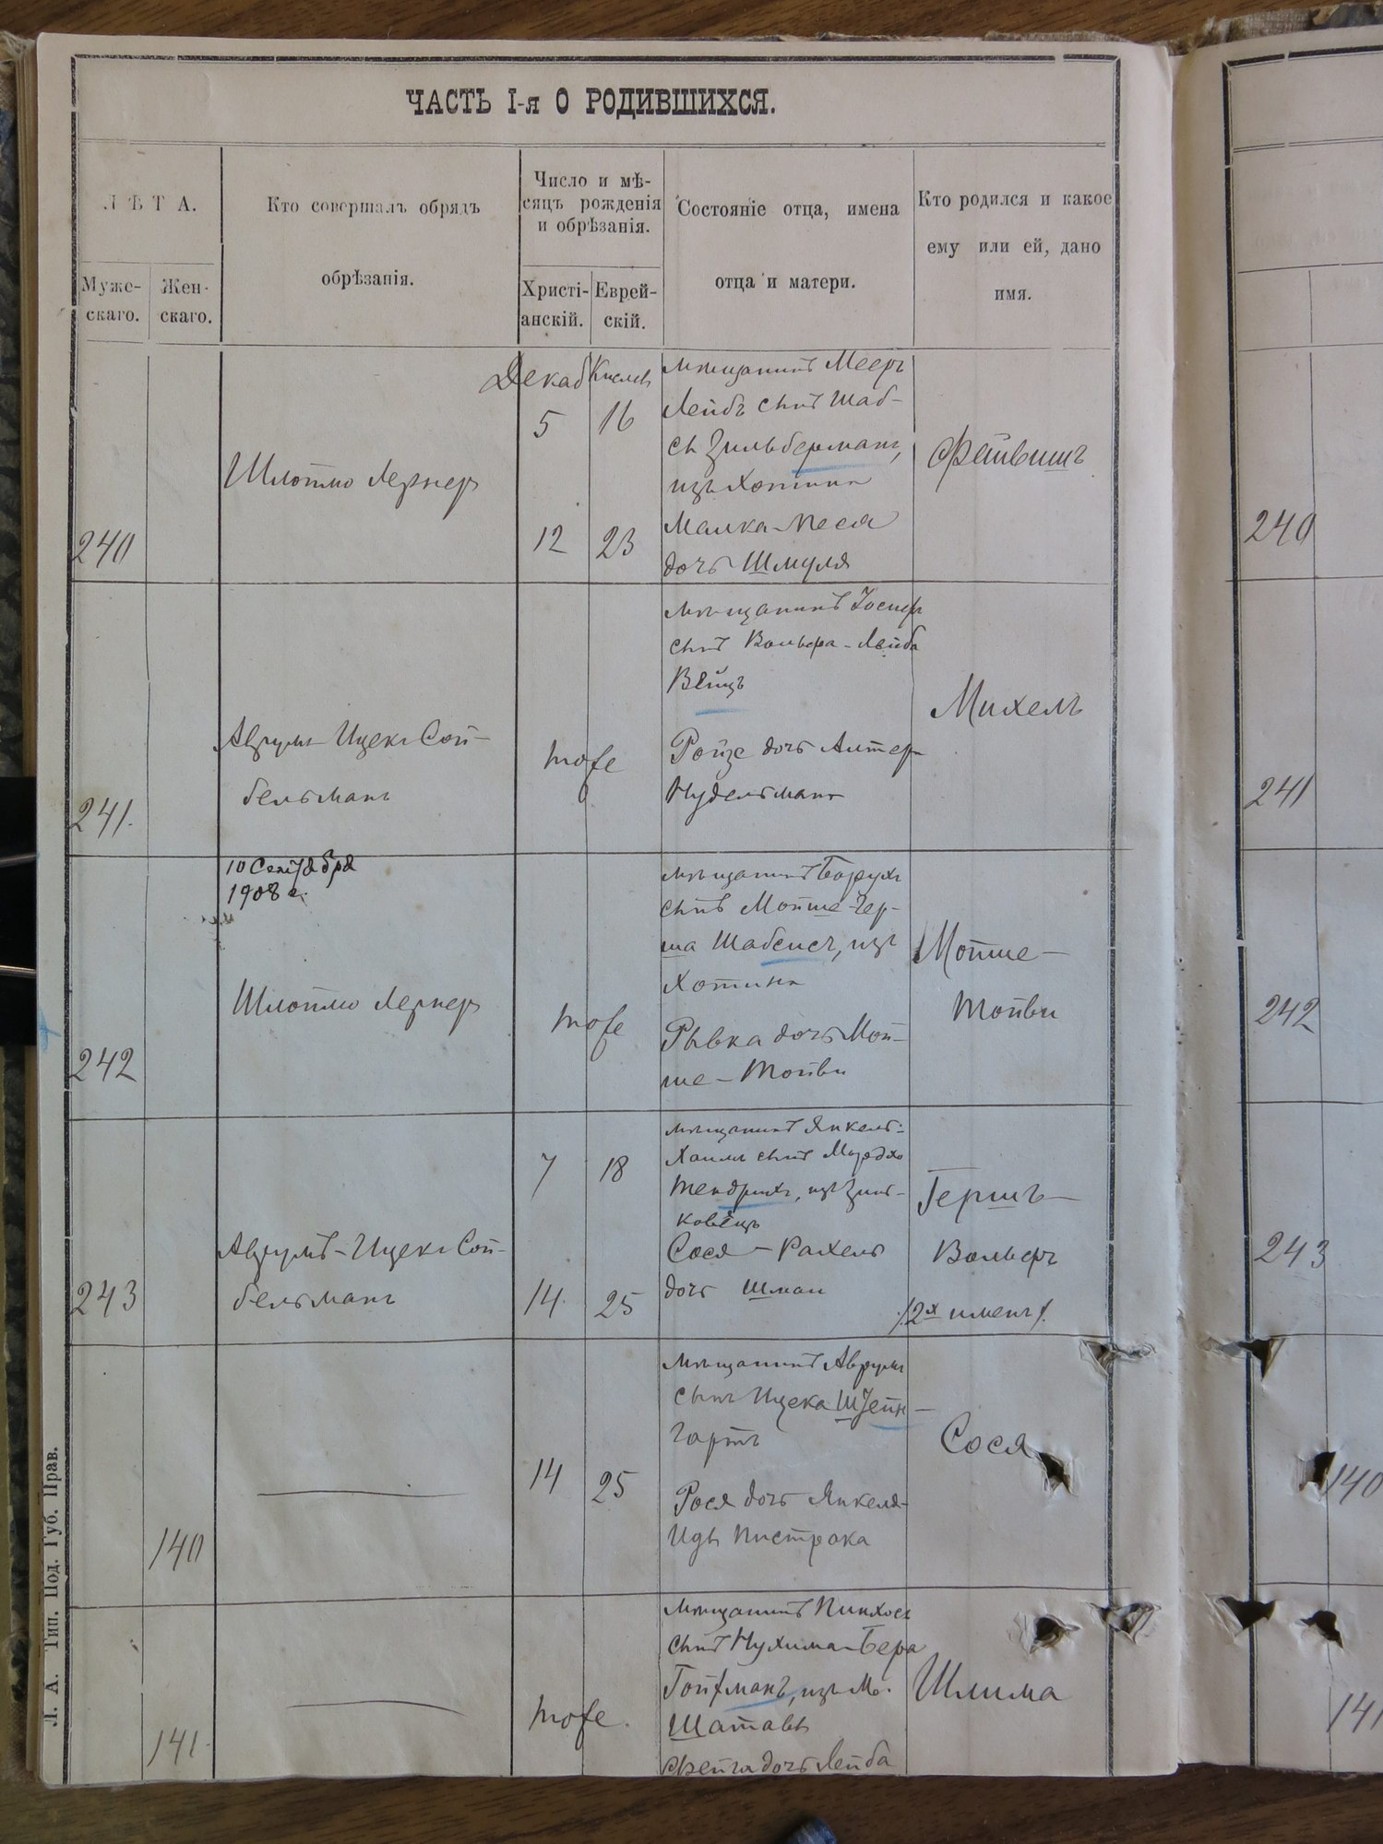 ЧАСТЬ I-я О РОДИВШИХСЯ.
ЛѢТА.
Муже-
скаго.
Жен-
скаго.
Кто совершалъ обрядъ
обрѣзанія.
Число и мѣ-
сяцъ рожденія
и обрѣзанія.
Христі-
анскій.
Еврей-
скій.
Состояніе отца, имена
отца и матери.
Кто родился и какое
ему или ей, дано
имя.
240
Шлоймо Лернеръ
Декаб
5
12
Кислев
16
23
мѣщанинъ Мееръ
Лейбъ сынъ Шаб-
сы Зильберманъ,
изъ Хотина
Малка-Песя
дочь Шмуля
Файвишъ
240
241.
Аврумъ-Ицекъ Сой-
бельманъ
тоже
мѣщанинъ Іосифъ
сынъ Вольфа-Лейба
Вейцъ
Ройзе дочь Алтер
Нудельманъ
Михель
241
242
10 Сентября
1908 г.
Шлоймо Лернеръ
тоже
мѣщанинъ Борухъ
сынъ Мойше-Гер-
ша Шабсисъ, изъ
Хотина
Рывка дочь Мой-
ше-Тойви
Мойше-
Тойви
242
243
Аврумъ-Ицекъ Сой-
бельманъ
7
14
18
25
мѣщанинъ Янкель-
Хаимъ сынъ Мордхо
Тендрихъ, изъ Зинь-
ковецъ
Сося-Рахель
дочь Шмаи
Гершъ-
Вольфъ
/2х именъ/.
243
140
14
25
мѣщанинъ Аврумъ
сынъ Ицека Штейн-
гартъ
Рося дочь Янкеля-
Иды Пистрака
Сося
140
141
тоже.
мѣщанинъ Пинхосъ
сынъ Нухима-Бера
Гойфманъ, изъ м.
Шатавы
Фейга дочь Лейба
Шлима
141
Л. А. Тип. Под. Губ. Прав.